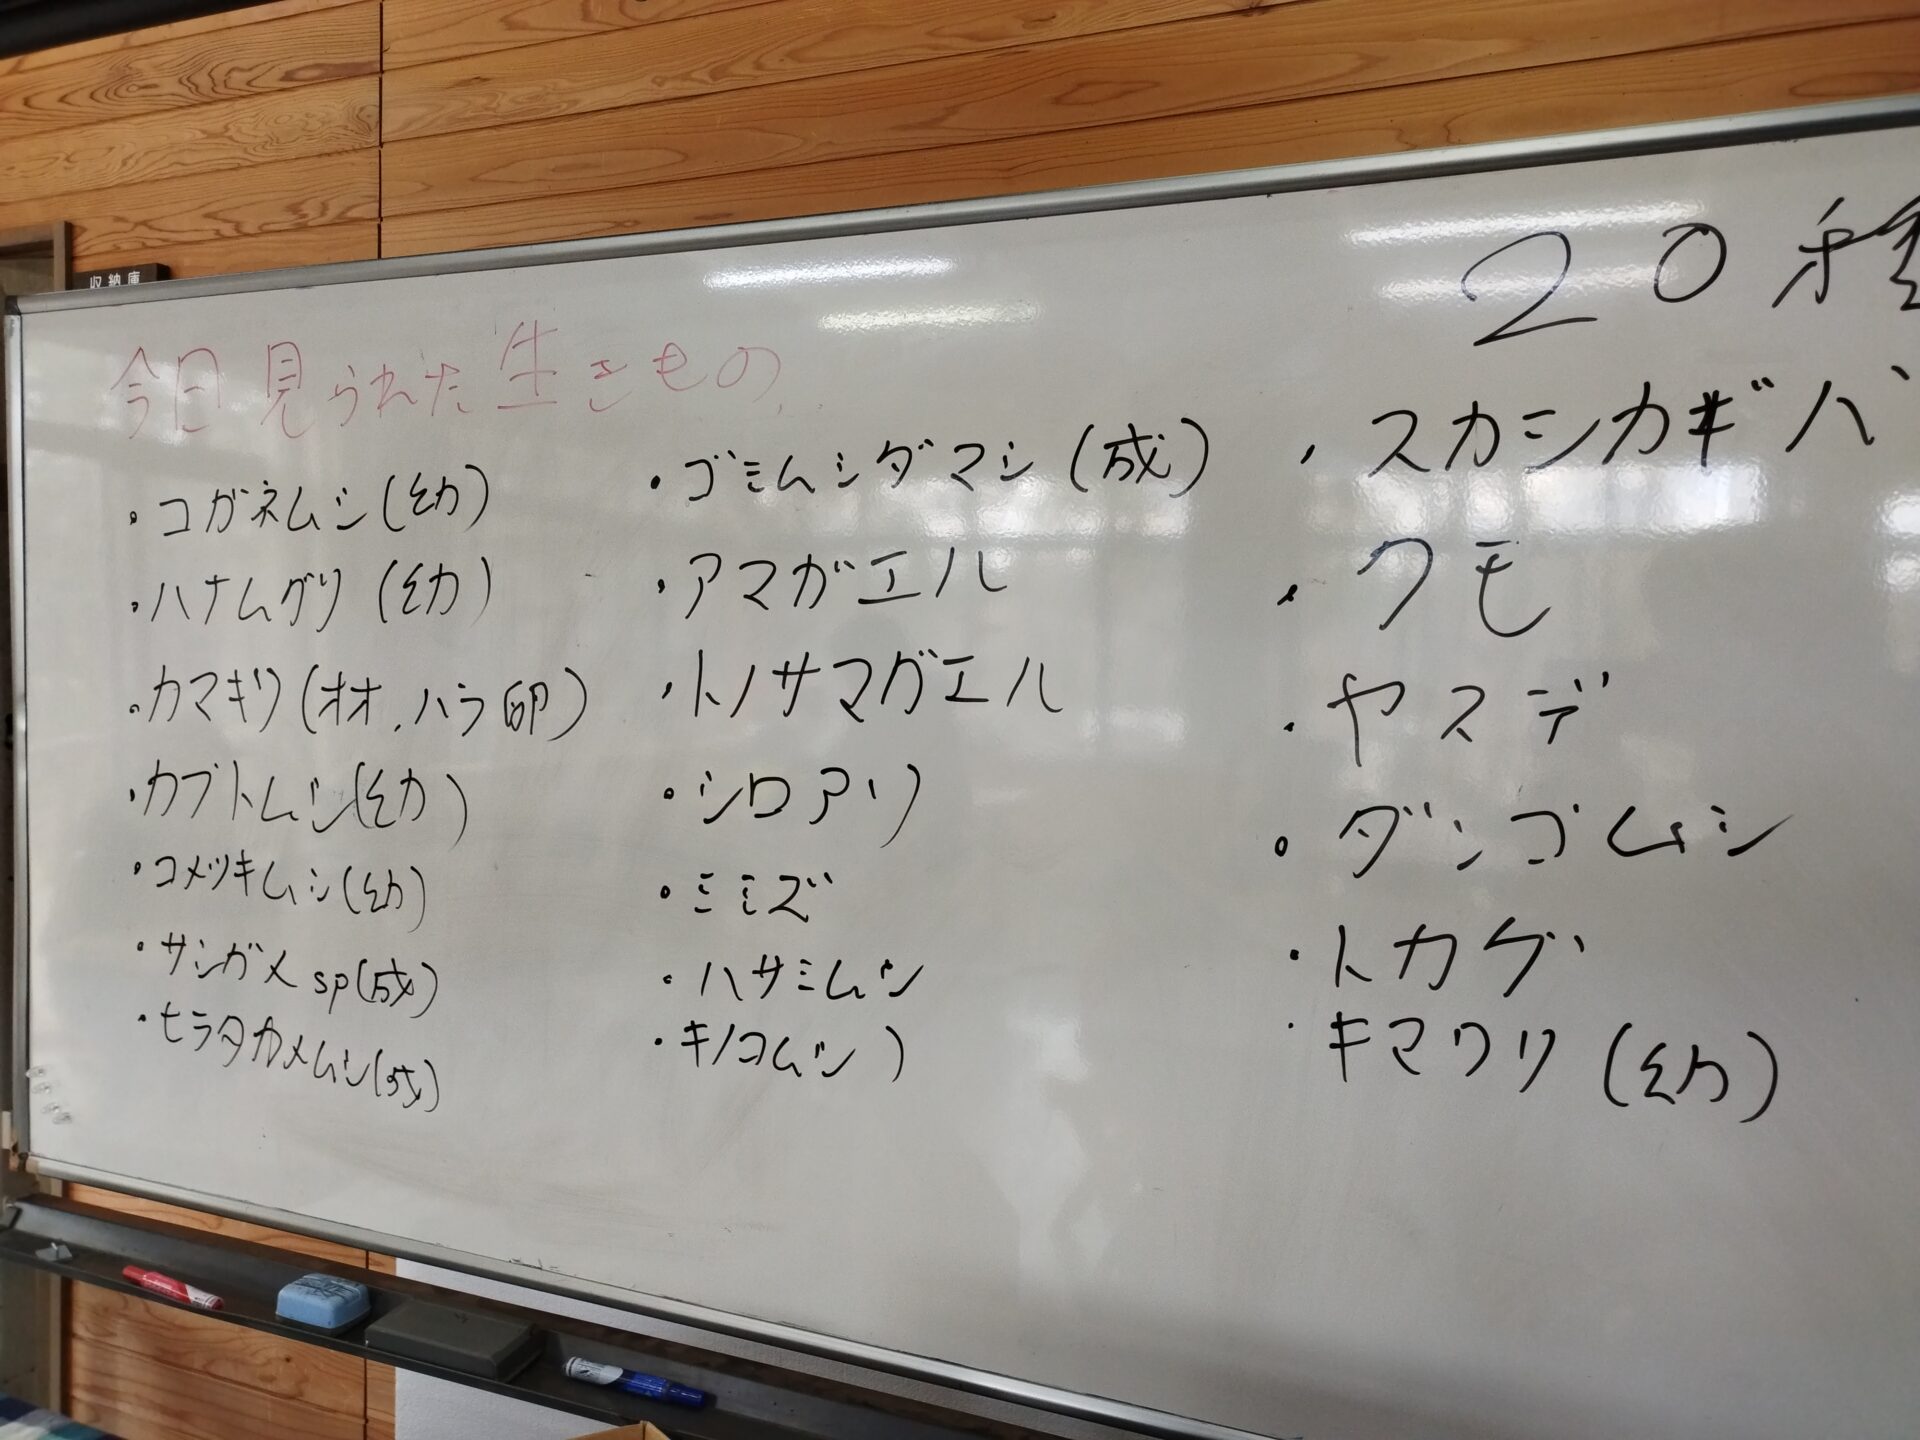 収納庫
今日見られた生きもの
・コガネムシ(幼)
・ハナムグリ(幼)
・カマキリ(オオ,ハラ卵)
・カブトムシ(幼)
・コメツキムシ(幼)
・サシガメsp(成)
・ヒラタカメムシ(成)
・ゴミムシダマシ(成)
・アマガエル
・トノサマガエル
・シロアリ
・ミミズ
・ハサミムシ
・キノコムシ)
20種
・スカシカギバ
・クモ
・ヤスデ
・ダンゴムシ
・トカゲ
・キマワリ(幼)